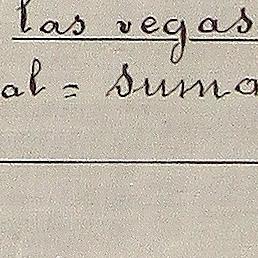 las vegas
al = suma